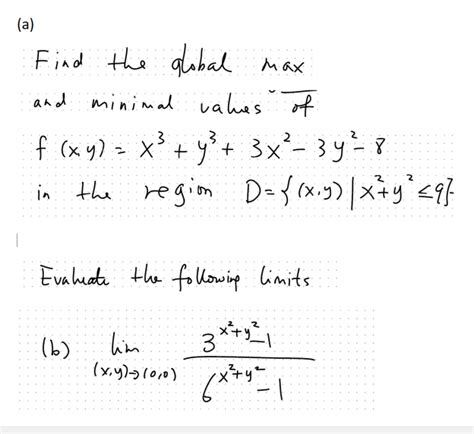 (a)
Find the global max
and minimal values of
f (x y) = x³ + y³ + 3x² - 3y² - 8
in the region D = {(x,y) | x² + y² ≤ 9}.
Evaluate the following limits
(b) lim_{(x,y)→(0,0)} \frac{3^{x²+y²} - 1}{6^{x²+y²} - 1}